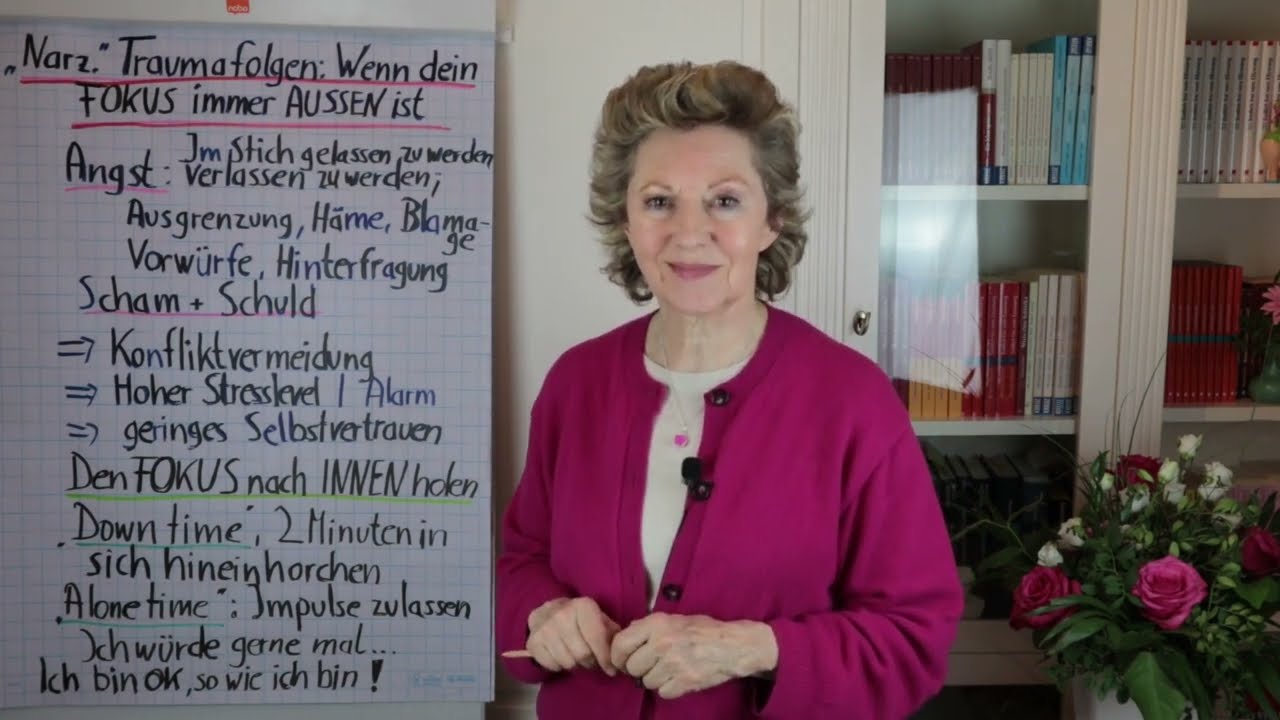 nobo
„Narz." Traumafolgen: Wenn dein
FOKUS immer AUSSEN ist
Angst: Im Stich gelassen zu werden
verlassen zu werden;
Ausgrenzung, Häme, Blama-
ge
Vorwürfe, Hinterfragung
Scham + Schuld
=> Konfliktvermeidung
=> Hoher Stresslevel / Alarm
=> geringes Selbstvertrauen
Den FOKUS nach INNEN holen
„Down time", 2 Minuten in
sich hineinhorchen
„Alone time": Impulse zulassen
Ich würde gerne mal...
Ich bin OK, so wie ich bin!